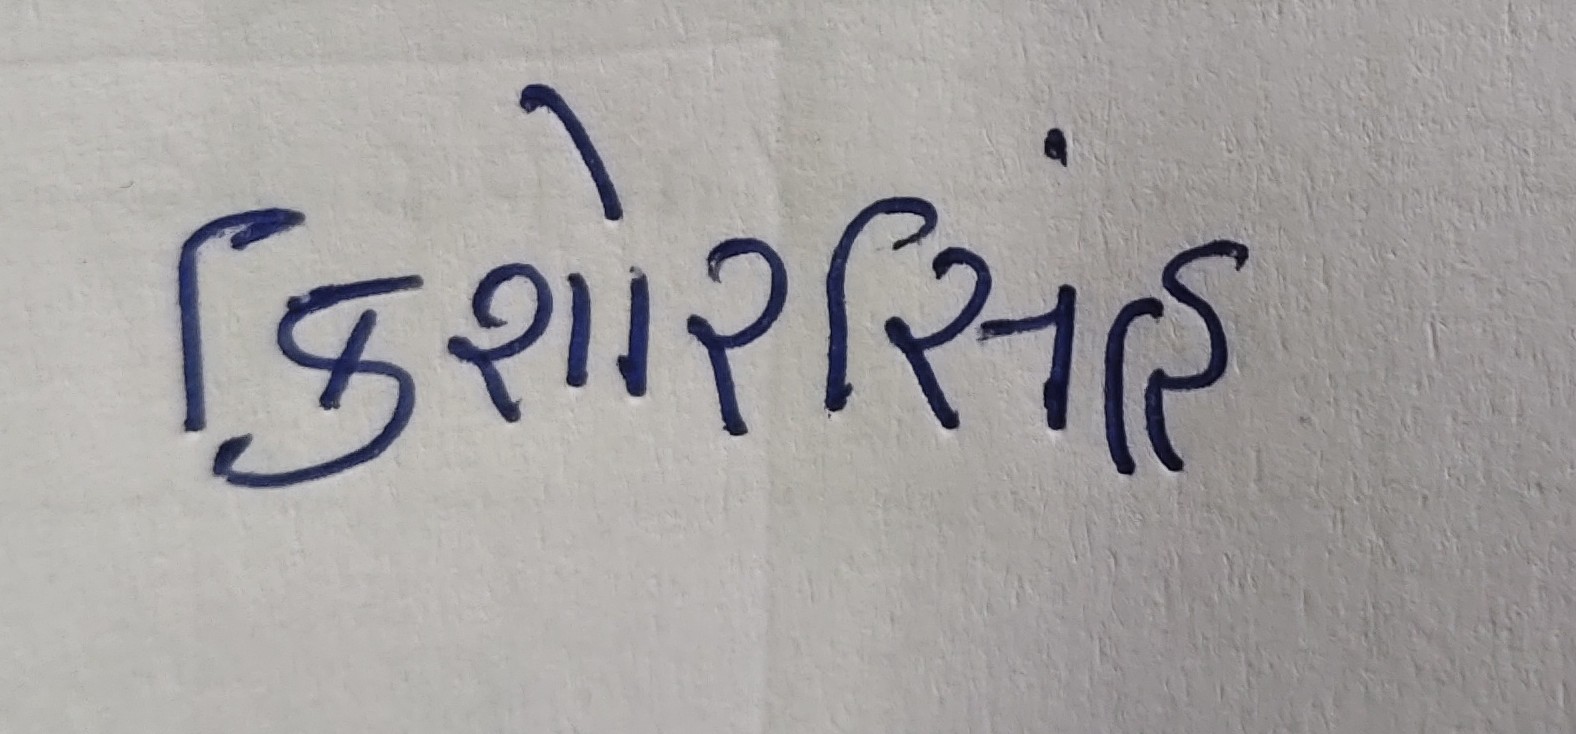 કિશોરસિંહ